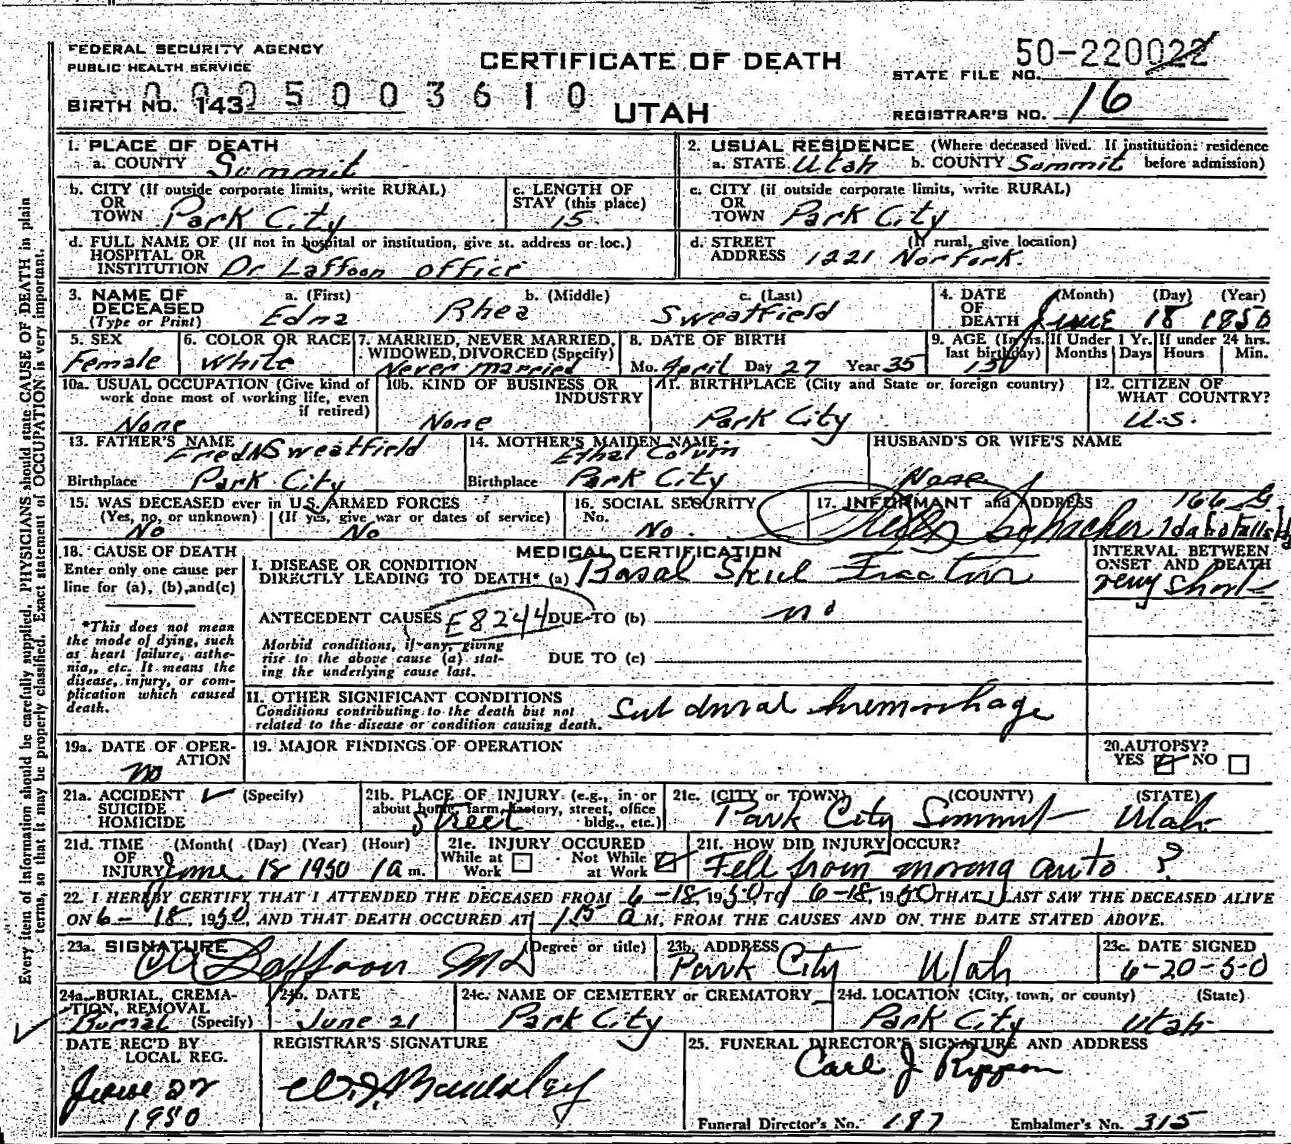 FEDERAL SECURITY AGENCY
PUBLIC HEALTH SERVICE
BIRTH NO. 143
0005003610
CERTIFICATE OF DEATH
UTAH
50-220022
STATE FILE NO.
REGISTRAR'S NO. 16
1. PLACE OF DEATH
a. COUNTY Summit
2. USUAL RESIDENCE (Where deceased lived. If institution: residence
a. STATE Utah b. COUNTY Summit before admission)
b. CITY (If outside corporate limits, write RURAL)
OR
TOWN Park City
c. LENGTH OF
STAY (this place)
15
c. CITY (if outside corporate limits, write RURAL)
OR
TOWN Park City
d. FULL NAME OF (If not in hospital or institution, give st. address or loc.)
HOSPITAL OR
INSTITUTION Dr Laffoon office
d. STREET (If rural, give location)
ADDRESS 1221 Norfork.
3. NAME OF a. (First) b. (Middle) c. (Last)
DECEASED
(Type or Print) Edna Rhea Sweatfield
4. DATE (Month) (Day) (Year)
OF
DEATH June 18 1950
5. SEX
Female
6. COLOR OR RACE
White
7. MARRIED, NEVER MARRIED,
WIDOWED, DIVORCED (Specify)
Never Married
8. DATE OF BIRTH
Mo. April Day 27 Year 35
9. AGE (In yrs. last birthday) 15
If Under 1 Yr. Months Days
If under 24 hrs. Hours Min.
10a. USUAL OCCUPATION (Give kind of
work done most of working life, even
if retired)
None
10b. KIND OF BUSINESS OR
INDUSTRY
None
11. BIRTHPLACE (City and State or foreign country)
Park City
12. CITIZEN OF
WHAT COUNTRY?
U.S.
13. FATHER'S NAME
Fred N Sweatfield
Birthplace Park City
14. MOTHER'S MAIDEN NAME
Ethel Corum
Birthplace Park City
HUSBAND'S OR WIFE'S NAME
None
15. WAS DECEASED ever in U.S. ARMED FORCES
(Yes, no, or unknown) (If yes, give war or dates of service)
No No
16. SOCIAL SECURITY
No.
No.
17. INFORMANT and ADDRESS 166 G
Schacher Idaho Falls
18. CAUSE OF DEATH
Enter only one cause per
line for (a), (b), and (c)
*This does not mean
the mode of dying, such
as heart failure, asthe-
nia,, etc. It means the
disease, injury, or com-
plication which caused
death.
MEDICAL CERTIFICATION
I. DISEASE OR CONDITION
DIRECTLY LEADING TO DEATH* (a) Basal Skul Fraction
ANTECEDENT CAUSES E8244 DUE TO (b) no
Morbid conditions, if any, giving
rise to the above cause (a) stat-
ing the underlying cause last.
DUE TO (c)
INTERVAL BETWEEN
ONSET AND DEATH
very Short
II. OTHER SIGNIFICANT CONDITIONS
Conditions contributing to the death but not
related to the disease or condition causing death.
Sub dural hemorrhage
19a. DATE OF OPER-
ATION
no
19. MAJOR FINDINGS OF OPERATION
20. AUTOPSY?
YES NO
21a. ACCIDENT ✓ (Specify)
SUICIDE
HOMICIDE
21b. PLACE OF INJURY (e.g., in or
about home, farm, factory, street, office
bldg., etc.)
Street
21c. (CITY or TOWN) (COUNTY) (STATE)
Park City Summit Utah
21d. TIME (Month) (Day) (Year) (Hour)
OF
INJURY June 18 1950 1 a m.
21e. INJURY OCCURED
While at Work Not While at Work
21f. HOW DID INJURY OCCUR?
Fell from moving auto ?
22. I HEREBY CERTIFY THAT I ATTENDED THE DECEASED FROM 6-18, 1950 TO 6-18, 1950 THAT I LAST SAW THE DECEASED ALIVE
ON 6-18 1950, AND THAT DEATH OCCURED AT 1:15 a M, FROM THE CAUSES AND ON THE DATE STATED ABOVE.
23a. SIGNATURE (Degree or title)
Laffoon MD
23b. ADDRESS
Park City Utah
23c. DATE SIGNED
6-20-50
24a. BURIAL, CREMA-
TION, REMOVAL
Burial (Specify)
24b. DATE
June 21
24c. NAME OF CEMETERY or CREMATORY
Park City
24d. LOCATION (City, town, or county) (State)
Park City Utah
DATE REC'D BY
LOCAL REG.
June 22
1950
REGISTRAR'S SIGNATURE
25. FUNERAL DIRECTOR'S SIGNATURE AND ADDRESS
Carl J Rippon
Funeral Director's No. 187 Embalmer's No. 315
Every item of information should be carefully supplied. PHYSICIANS should state CAUSE OF DEATH in plain
terms, so that it may be properly classified. Exact statement of OCCUPATION is very important.